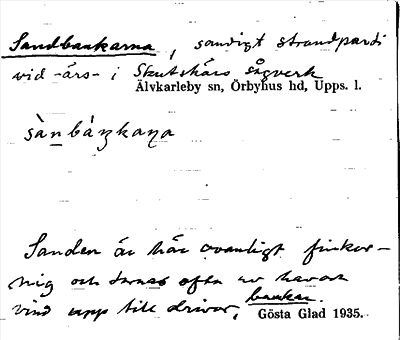 Sandbankarna, sandigt strandparti
vid -års- i Skutskärs sågverk
Älvkarleby sn, Örbyhus hd, Upps. l.
sànbáŋkaɳa
Sanden är här ovanligt finkor-
nig och ofta av havet
vind upp till drivor, bankar.
Gösta Glad 1935.